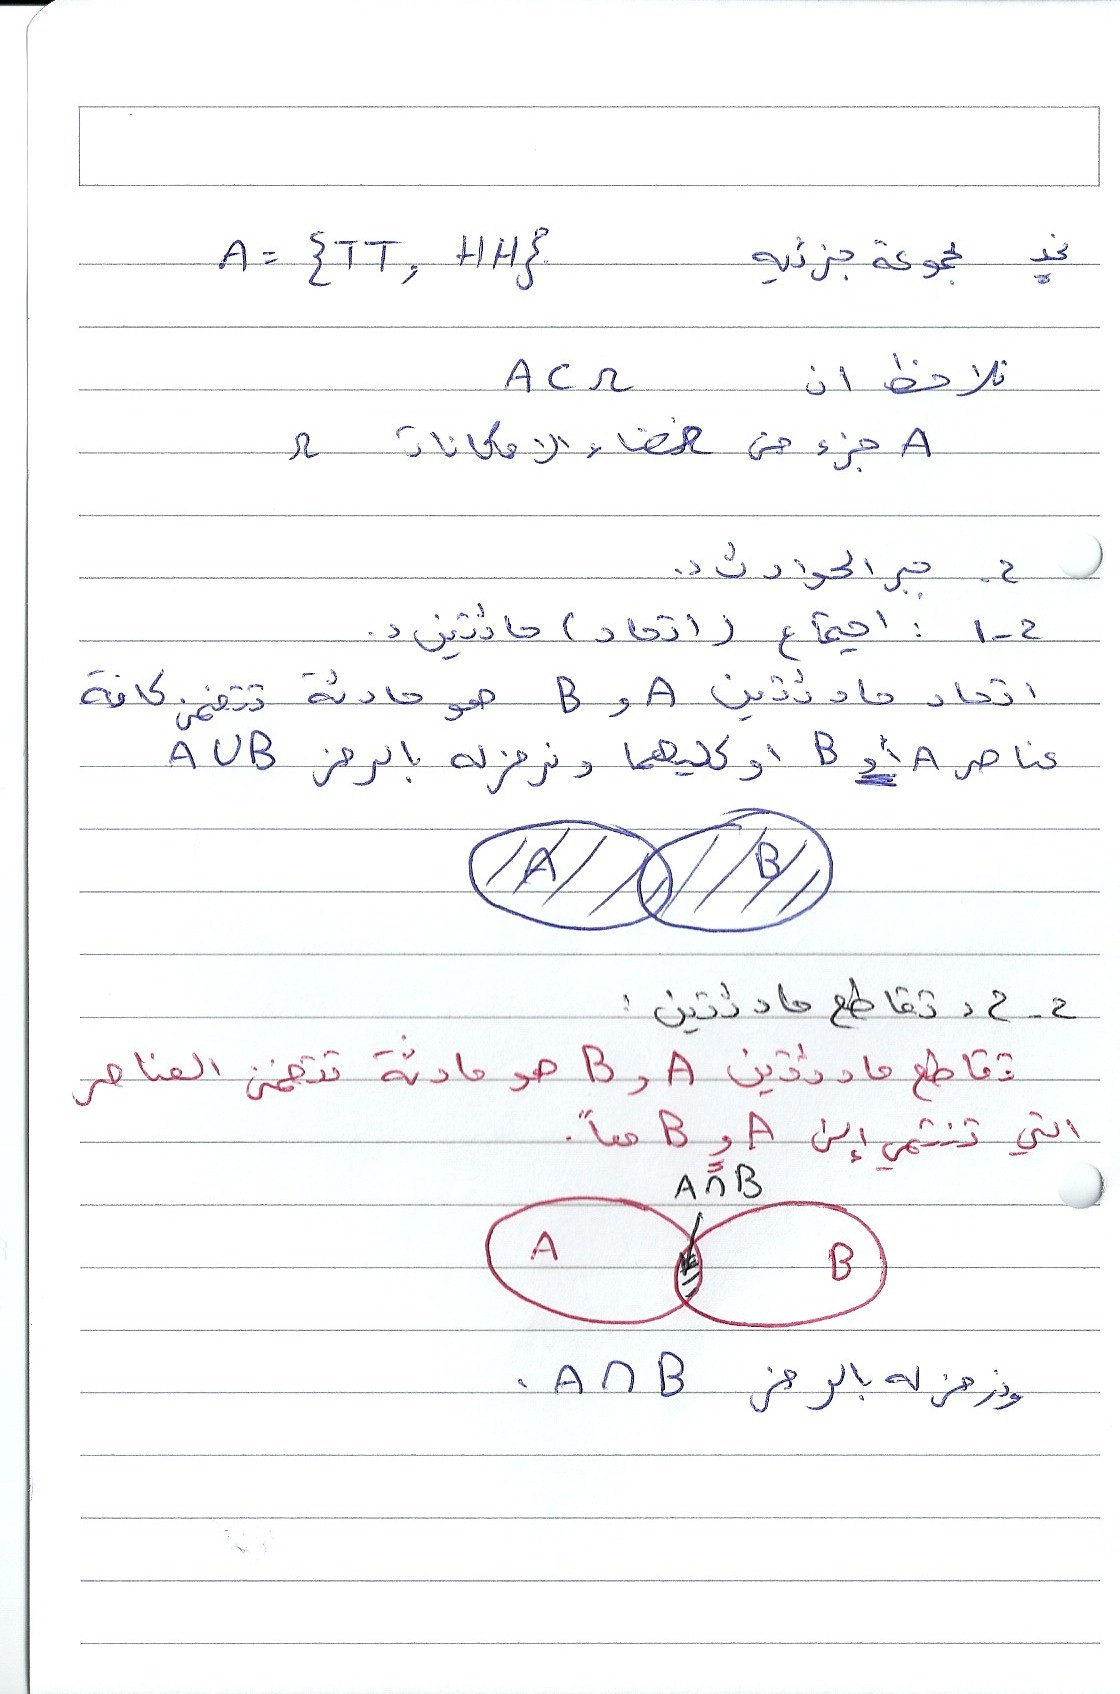 نجد مجموعة جزئية A = {TT, HH}
نلاحظ ان A ⊂ Ω
A جزء من فضاء الامكانات Ω
2. جبر الحوادث:
2-1 : اجتماع (اتحاد) حادثتين:
اتحاد حادثتين A و B هو حادثة تتضمن كافة
عناصر A أو B او كليهما ونرمز له بالرمز A∪B
A B
2-2: تقاطع حادثتين:
تقاطع حادثتين A و B هو حادثة تتضمن العناصر
التي تنتمي إلى A و B معاً.
A∩B
A B
ونرمز له بالرمز A∩B.